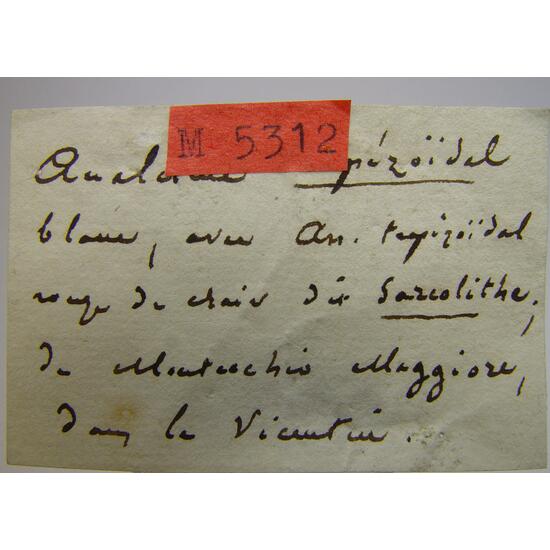 M 5312
Analcime pézoïdal
blanc, avec An. trapézoïdal
rouge de chair dit Sarcolithe,
de Montecchio Maggiore,
dans le Vicentin.